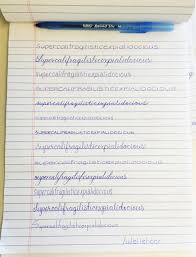 Supercalifragilisticexpialidocious
Supercalifragilisticexpialidocious
Supercalifragilisticexpialidocious
SUPERCALIFRAGILISTICEXPIALIDOCIOUS
supercalifragilisticexpialidocious
supercalifragilisticexpialidocious
SUPERCALIFRAGILISTICEXPIALIDOCIOUS
Supercalifragilisticexpialidocious
Supercalifragilisticexpialidocious
supercalifragilisticexpialidocious
Supercalifragilisticexpialidocious
Supercalifragilisticexpialidocious
Supercalifragilisticexpialidocious